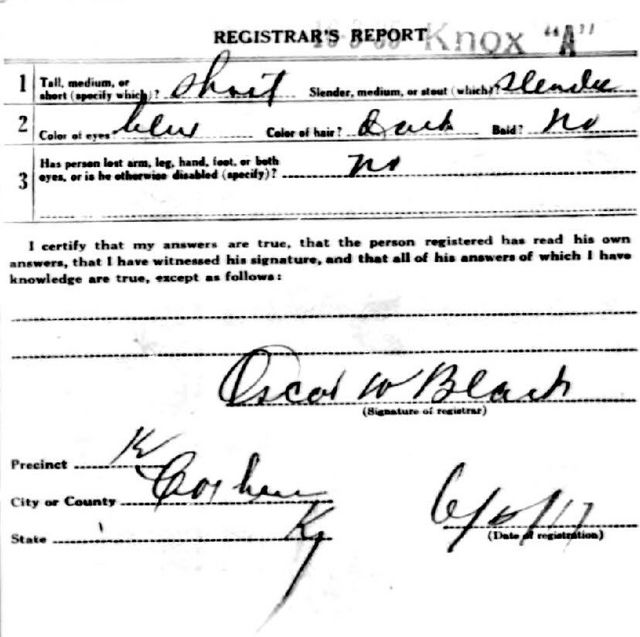 REGISTRAR'S REPORT Knox "A"
1 Tall, medium, or short (specify which)? short Slender, medium, or stout (which)? slender
2 Color of eyes blue Color of hair? Dark Bald? No
3 Has person lost arm, leg, hand, foot, or both eyes, or is he otherwise disabled (specify)? no
I certify that my answers are true, that the person registered has read his own
answers, that I have witnessed his signature, and that all of his answers of which I have
knowledge are true, except as follows:
Oscar W Black
(Signature of registrar)
Precinct
City or County
State Ky
(Date of registration)